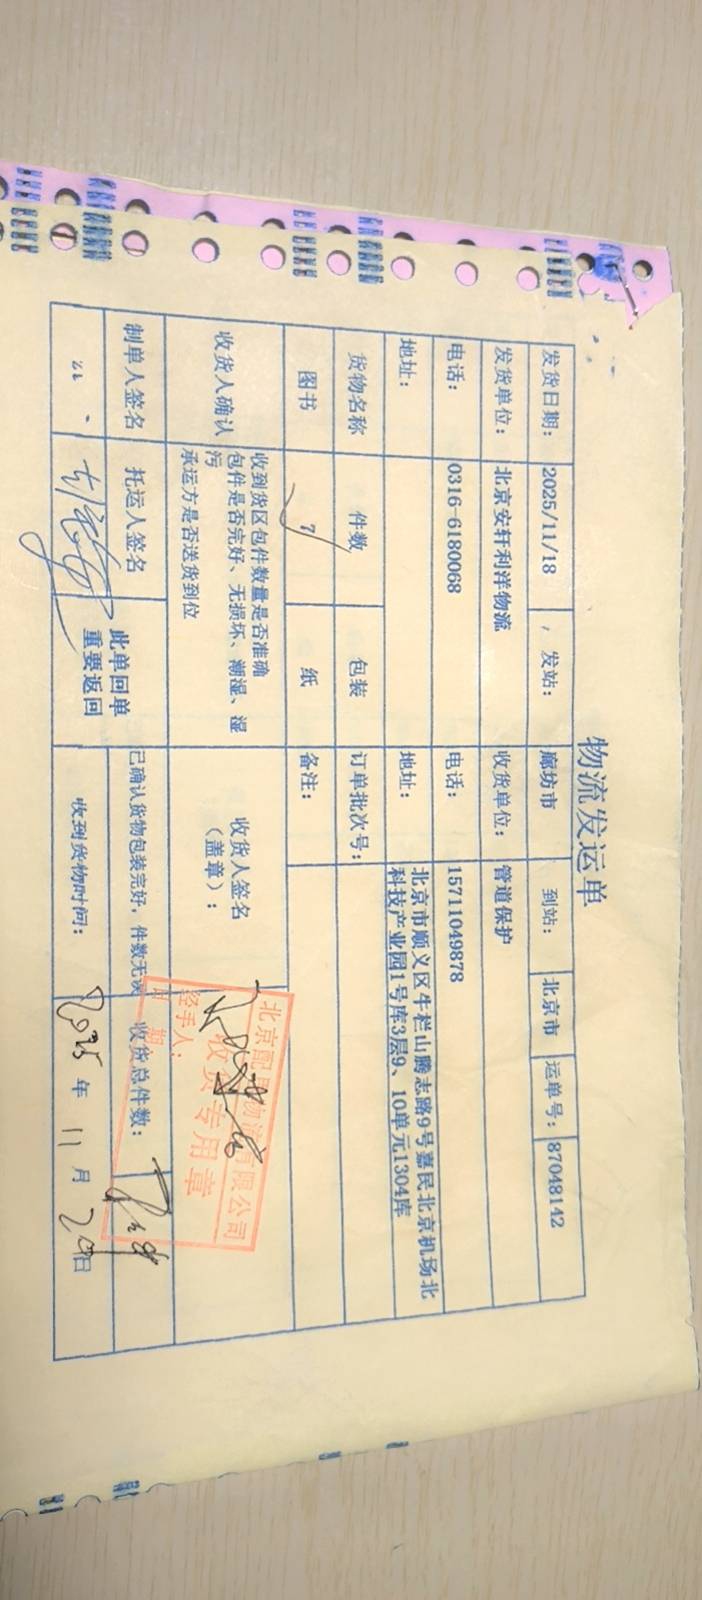 物流发运单
发货日期： 2025/11/18 ，发站： 廊坊市 到站： 北京市 运单号： 87048142
发货单位： 北京安轩利洋物流 收货单位： 管道保护
电话： 0316-6180068 电话： 15711049878
地址： 地址： 北京市顺义区牛栏山腾志路9号嘉民北京机场北
科技产业园1号库3层9、10单元1304库
货物名称 件数 包装 订单批次号：
图书 7 纸 备注：
收货人确认 收到货区包件数量是否准确
包件是否完好、无损坏、潮湿、湿
污
承运方是否送货到位
收货人签名
（盖章）：
北京配 物流有限公司
收货专用章
经手人：
日 期：
制单人签名 托运人签名 此单回单
重要返回
已确认货物包装完好，件数无误 收货总件数：
收到货物时间： 2025 年 11 月 20 日